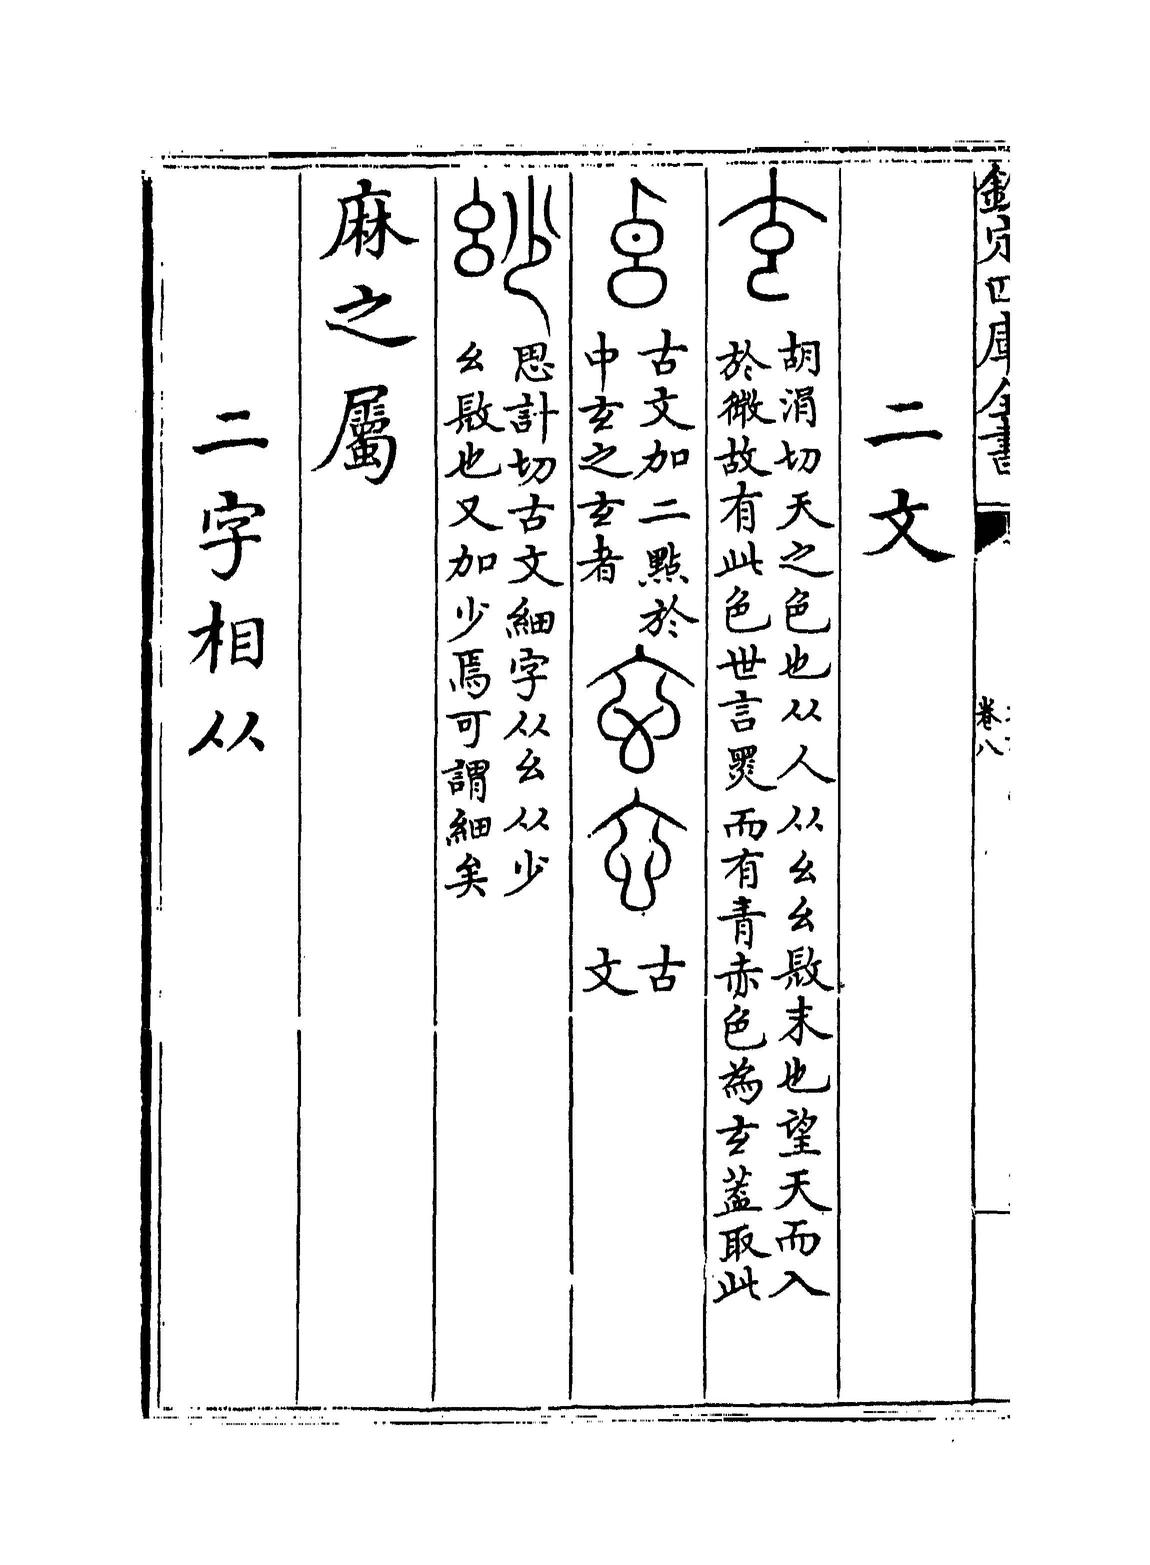 欽定四庫全書
卷八
二文
胡涓切天之色也从人从幺幺最末也望天而入
於微故有此色世言㒱而有青赤色為玄蓋取此
古文加二點於
中玄之玄者
古
文
思計切古文細字从幺从少
幺最也又加少焉可謂細矣
麻之屬
二字相从